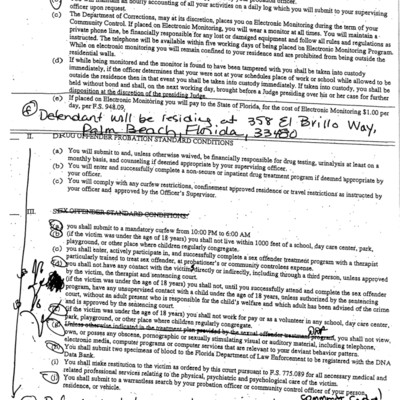 will maintain an hourly accounting of all your activities on a daily log which you will submit to your supervising
officer upon request.
(c) The Department of Corrections, may at its discretion, places you on Electronic Monitoring during the term of your
Community Control. If placed on Electronic Monitoring, you will wear a monitor at all times. You will maintain a
private phone line, be financially responsible for any lost or damaged equipment and follow all rules and regulations as
instructed. The telephone will be available within five working days of being placed on Electronic Monitoring Program.
While on electronic monitoring you will remain confined to your residence and are prohibited from being outside the
residential walls.
(d) If while being and the monitor is found to have been tampered with you shall be taken into custody
immediately, if the officer determines that your were not at your schedules place of work or school while allowed to be
outside the residence then in that event you shall be taken into custody immediately. If taken into custody, you shall be
held without bond and shall, on the next working day, brought before a Judge presiding over his or her case for further
disposition at the discretion of the presiding Judge.
(e) If placed on Electronic Monitoring you will pay to the State of Florida, for the cost of Electronic Monitoring $1.00 per
day, per F.S. 948.09.
Defendant will be residing at 358 El Brillo Way,
Palm Beach, Florida, 33480
II. DRUG OFFENDER PROBATION STANDARD CONDITIONS
(a) You will submit to and, unless otherwise waived, be financially responsible for drug testing, urinalysis at least on a
monthly basis, and counseling if deemed appropriate by your supervising officer.
(b) You will enter and successfully complete a non-secure or inpatient drug treatment program if deemed appropriate by
your officer.
(c) You will comply with any curfew restrictions, confinement approved residence or travel restrictions as instructed by
your officer and approved by the Officer's Supervisor.
III. SEX OFFENDER STANDARD CONDITIONS:
(a) you shall submit to a mandatory curfew from 10:00 PM to 6:00 AM
(b) (if the victim was under the age of 18 years) you shall not live within 1000 feet of a school, day care center, park,
playground, or other place where children regularly congregate.
(c) you shall enter, actively participate in, and successfully complete a sex offender treatment program with a therapist
particularly trained to treat sex offender, at probationer's or community controlees expense.
(d) you shall not have any contact with the victim directly or indirectly, including through a third person, unless approved
by the victim, the therapist and sentencing court.
(if the victim was under the age of 18 years) you shall not, until you successfully attend and complete the sex offender
program, have any unsupervised contact with a child under the age of 18 years, unless authorized by the sentencing
court, without an adult present who is responsible for the child's welfare and which adult has been advised of the crime
and is approved by the sentencing court.
(if the victim was under age of 18 years) you shall not work for pay or as a volunteer in any school, day care center,
park, playground, or other place where children regularly congregate.
Unless otherwise indicated in the treatment plan provided by the sexual offender treatment program, you shall not view,
own, or posses any obscene, pornographic or sexually stimulating visual or auditory material, including telephone,
electronic media, computer programs or computer services that are relevant to your deviant behavior pattern.
You shall submit two specimens of blood to the Florida Department of Law Enforcement to be registered with the DNA
Data Bank.
(i) You shall make restitution to the victim as ordered by this court pursuant to F.S. 775.089 for all necessary medical and
related professional services relating to the physical, psychiatric and psychological care of the victim.
(j) You shall submit to a warrantless search by your probation officer or community control officer of your person,
residence, or vehicle.